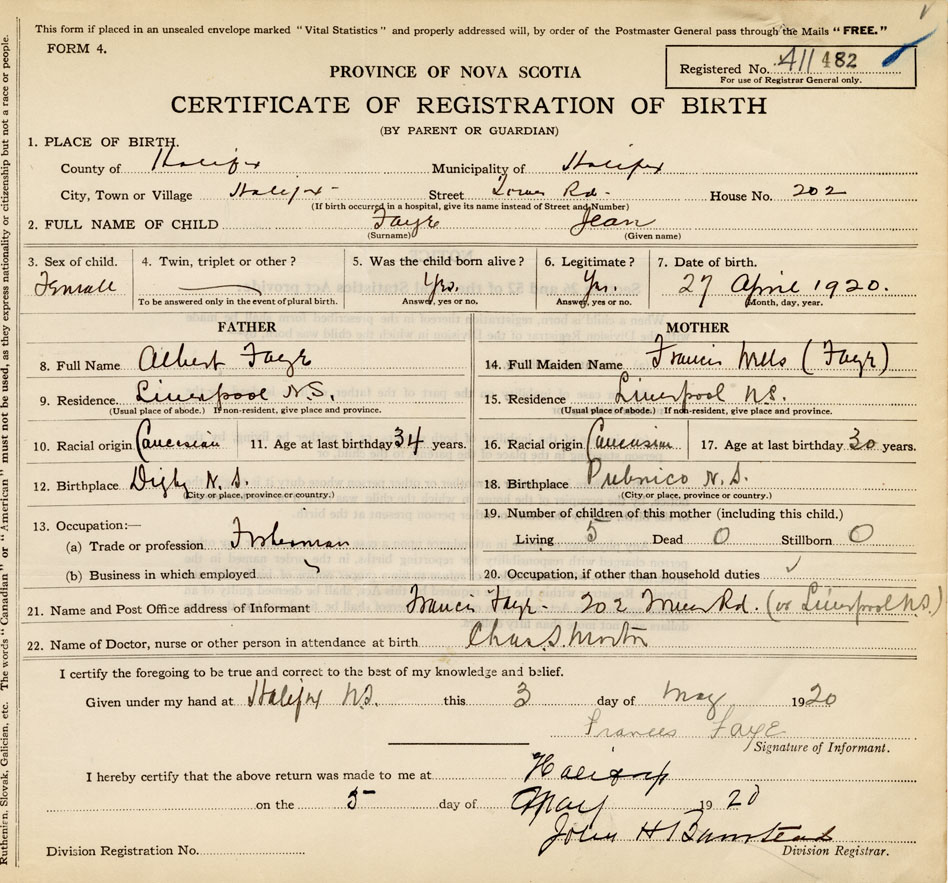 This form if placed in an unsealed envelope marked "Vital Statistics" and properly addressed will, by order of the Postmaster General pass through the Mails "FREE."
FORM 4.
Registered No. 411482
For use of Registrar General only.
PROVINCE OF NOVA SCOTIA
CERTIFICATE OF REGISTRATION OF BIRTH
(BY PARENT OR GUARDIAN)
1. PLACE OF BIRTH.
County of Halifax Municipality of Halifax
City, Town or Village Halifax Street Tower Rd. House No. 202
(If birth occurred in a hospital, give its name instead of Street and Number)
2. FULL NAME OF CHILD Faye Jean
(Surname) (Given name)
3. Sex of child. 4. Twin, triplet or other? 5. Was the child born alive? 6. Legitimate? 7. Date of birth.
Female Yes. Yes. 27 April 1920.
To be answered only in the event of plural birth. Answer, yes or no. Answer, yes or no. Month, day, year.
FATHER MOTHER
8. Full Name Albert Faye 14. Full Maiden Name Francis (Faye)
9. Residence Liverpool N.S. 15. Residence Liverpool N.S.
(Usual place of abode.) If non-resident, give place and province. (Usual place of abode.) If non-resident, give place and province.
10. Racial origin Caucasian 11. Age at last birthday 34 years. 16. Racial origin Caucasian 17. Age at last birthday 30 years.
12. Birthplace Digby N.S. 18. Birthplace Pubnico N.S.
(City or place, province or country.) (City or place, province or country.)
13. Occupation:— 19. Number of children of this mother (including this child.)
(a) Trade or profession Fisherman Living 5 Dead 0 Stillborn 0
(b) Business in which employed 20. Occupation, if other than household duties
21. Name and Post Office address of Informant Francis Faye - 202 Tower Rd. (or Liverpool N.S.)
22. Name of Doctor, nurse or other person in attendance at birth Chas. S. Morton
I certify the foregoing to be true and correct to the best of my knowledge and belief.
Given under my hand at Halifax N.S. this 3 day of May 1920
Frances Faye
Signature of Informant.
I hereby certify that the above return was made to me at Halifax
on the 5 day of May 1920
John H Barnstead
Division Registration No. Division Registrar.
Ruthenian, Slovak, Galician, etc. The words "Canadian" or "American" must not be used, as they express nationality or citizenship but not a race or people.